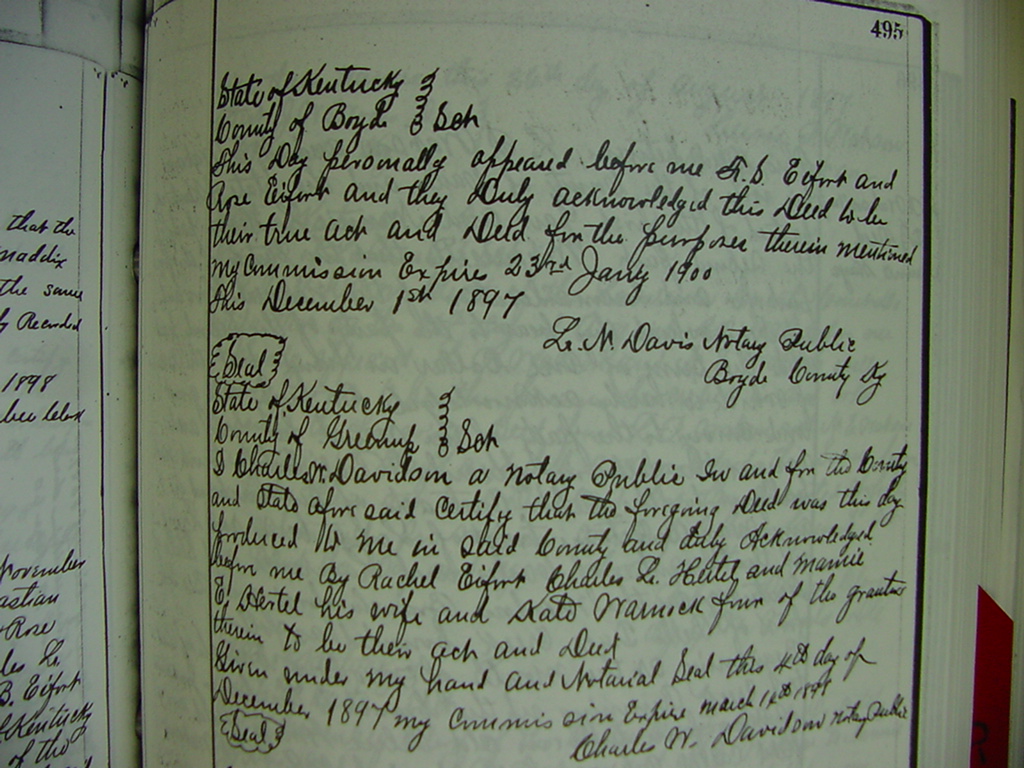 495
State of Kentucky
County of Boyde Sct
This Day personally appeared before me F. S. Eifort and
Rose Eifort and they Duly acknowledged this Deed to be
their true act and Deed for the purposes therein mentioned
my Commission Expires 23rd Jany 1900
this December 1st 1897
L. N. Davis Notary Public
Boyde County Ky
Seal
State of Kentucky
County of Greenup Sct
I Charles W. Davidson a Notary Public In and for the County
and State afore said Certify that the foregoing Deed was this day
produced to me in said County and duly Acknowledged
before me By Rachel Eifort Charles L. Hertel and Mamie
E. Hertel his wife and Kate Warnock four of the grantors
therein to be their act and Deed
Given under my hand and Notarial Seal this 4th day of
December 1897 my Commission Expire march 1898
Seal
Charles W. Davidson Notary Public
that the
maddix
the same
Recorded
1898
November
Rose
les L.
B. Eifort
of Kentucky
of the